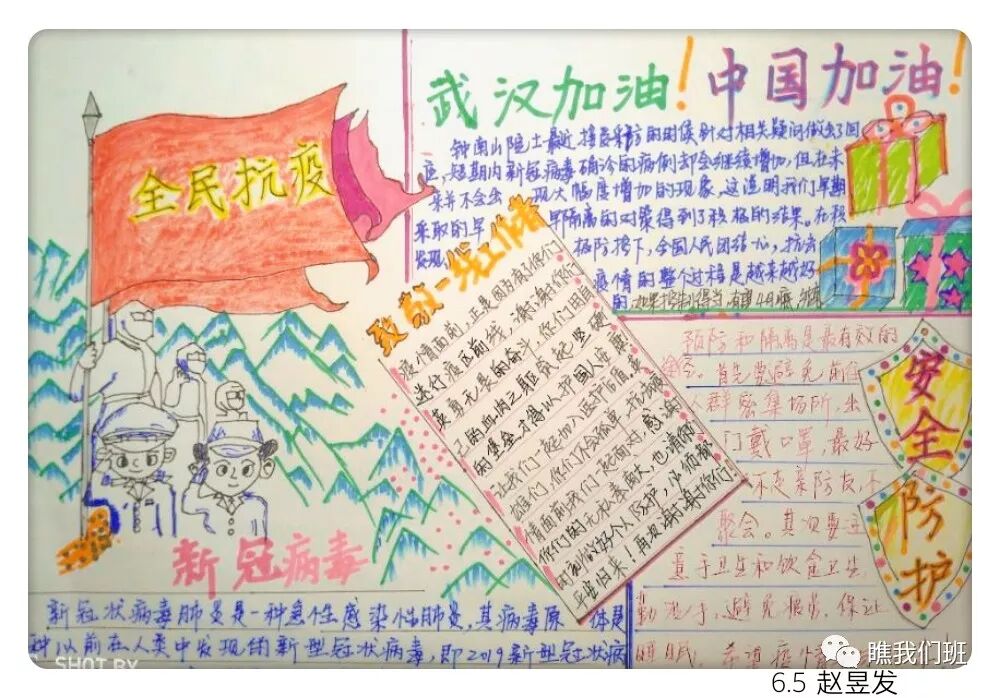 武汉加油！中国加油！
钟南山院士最近接受采访的时候针对相关疑问做出了回
应,短期内新冠病毒确诊的病例却会继续增加,但在未
来并不会出现大幅度增加的现象,这说明我们早期
采取的早发现早隔离的对策得到了积极的结果。在积
极防控下,全国人民团结一心,抗击
疫情的整个过程是越来越好
的
全民抗疫
致敬一线工作者
疫情面前,正是因为有了你们
进行疫区前线,谢谢你们
英勇无畏的奋斗,你们用自
己的血肉之躯筑起坚硬
的堡垒才得以护国人安康
让我们一起加入
雄们,你们不会孤单,抗病毒
情面前我们一起面对,感谢
你们的无私奉献
平安归来!再次谢谢你们!
新冠病毒
新冠状病毒肺炎是一种急性感染性肺炎,其病毒原体是
种以前在人类中发现的新型冠状病毒,即2019新型冠状病
安全
防护
预防和隔离是最有效的
首先要避免前往
人群密集场所,出
门戴口罩,最好
聚会。其次要注
意手卫生和饮食卫生,
勤洗手,避免疲劳,保证
睡眠。
SHOT BY
瞧我们班
6.5 赵昱发